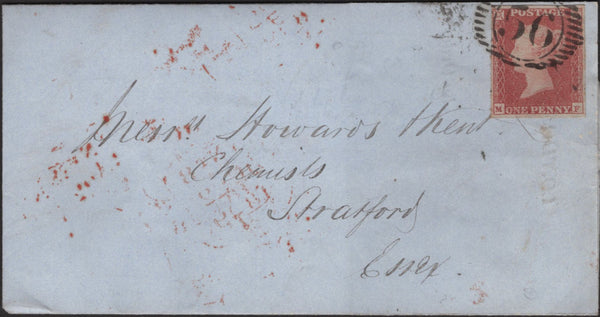 POSTAGE
36
M F
ONE PENNY
Messrs Howards & Kent
Chemists
Stratford
Essex.